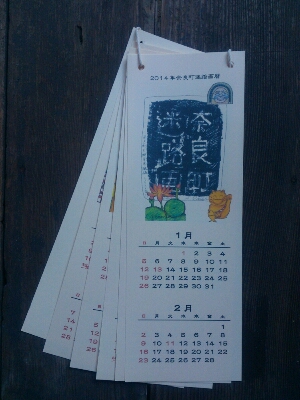 2014年奈良町迷路
奈良町
迷路
1月
日 月 火 水 木 金 土
1 2 3 4
5 6 7 8 9 10 11
12 13 14 15 16 17 18
19 20 21 22 23 24 25
26 27 28 29 30 31
2月
日 月 火 水 木 金 土
1
2 3 4 5 6 7 8
9 10 11 12 13 14 15
16 17 18 19 20 21 22
23 24 25 26 27 28